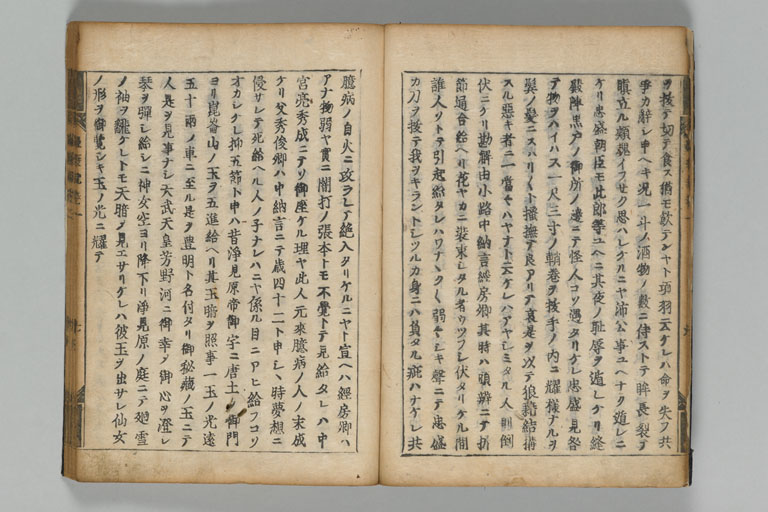 ヲ抜テ切テ食ス猶モ飲テンヤト項羽云ケレハ命ヲ失フ共
争カ辞シ申ヘキ況一斗ノ酒物ノ数ニ侍ストテ眸長裂テ
瞋立ル頬魂イフサク思ハレケルニヤ沛公事ユヘナク遁レニ
ケリ忠盛朝臣モ此郎等ユヘニ其夜ノ恥辱ヲ遁レケリ縫
殿陣黒戸ノ御所ノ辺ニテ怪人コソ遇タリケレ忠盛見咎
テ物ヲハイハス一尺三寸ノ鞘巻ヲ抜手ノ内ニ耀様ナルヲ
鬢ノ髪ニスハリ〱ト掻撫テ良アリテ哀是ヲ以テ狼藉結構
スル悪キ者ニ一当セハヤナト云ケレハアヤシミタル人則倒
伏ニケリ勘解由小路中納言経房卿其時ハ頭弁ニテ折
節通合給ヘリ花ヤカニ装束シタル者ウツフシ伏タリケル間
誰人ソトテ引起給タレハワナヽク〱弱ヤシキ声ニテ忠盛
カ刀ヲ抜テ我ヲキラントシツルカ身ニハ負タル疵ハナケレ共
臆病ノ自火ニ攻ラレテ絶入タリケルニヤト宣ヘハ経房卿ハ
アナ物弱ヤ実ニ闇打ノ張本トモ不覚トテ見給タレハ中
宮亮秀成ニテソ御座ケル理ヤ此人元来臆病ノ人ノ末成
ケリ父秀俊卿ハ中納言ニテ歳四十二ト申シヽ時夢想ニ
侵サレテ死給ヘル人ノ子ナレハニヤ係ル目ニアヒ給フコソ
オカシケレ抑五節ト申ハ昔浄見原帝御宇ニ唐土ノ御門
ヨリ崑崙山ノ玉ヲ五進給ヘリ其玉暗ヲ照事一玉ノ光遠
五十両ノ車ニ至ル是ヲ豊明ト名付タリ御秘蔵ノ玉ニテ
人是ヲ見事ナシ天武天皇芳野河ニ御幸ノ御心ヲ澄シ
琴ヲ弾シ給シニ神女空ヨリ降下リ浄見原ノ庭ニテ廻雪
ノ袖ヲ翻ケレトモ天暗ノ見エサリケレハ彼玉ヲ出サレ仙女
ノ形ヲ御覧シキ玉ノ光ニ耀テ